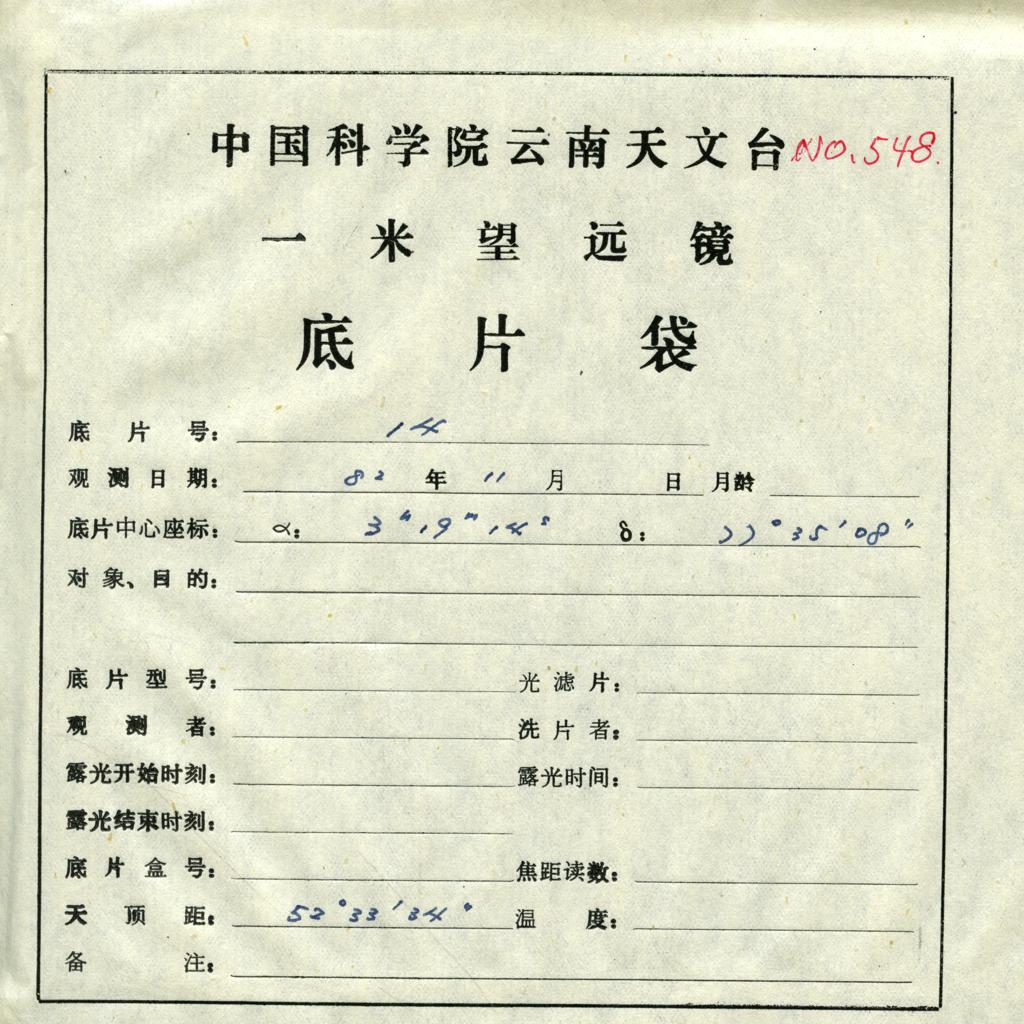 中国科学院云南天文台 NO.548.
一米望远镜
底片袋
底片号： 14
观测日期： 82 年 11 月 日 月龄
底片中心座标： α： 3ʰ 19ᵐ 14ˢ δ： 35′ 08″
对象、目的：
底片型号： 光滤片：
观测者： 洗片者：
露光开始时刻： 露光时间：
露光结束时刻：
底片盒号： 焦距读数：
天顶距： 52° 33′ 34″ 温度：
备注：